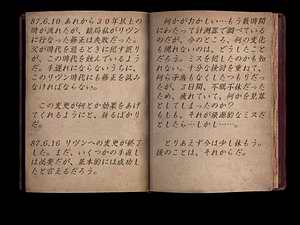 87.6.10 あれから３０年以上の
時が流れたが、結局私がリヴン
に行なった修正は失敗だった。
父が時代を遡るときに犯す誤り
が、この時代を蝕んでいるよう
だ。手遅れにならないうちに、
このリヴン時代にも修正を試み
なければならない。
この変更が何とか効果をあげ
てくれるようにと、祈るばかり
だ。
87.6.16 リヴンへの変更が終了
した。まだ、いくつかの手直し
は必要だが、基本的には成功し
たと言えるだろう。
何かがおかしい…もう数時間
にわたって計測器で調べている
のだが、今のところ、何の変化
も現れないのは、どうしたこと
だろう。ミスを犯したのかも知
れない。十分な検討を重ねて、
何ら矛盾もなくしたつもりだっ
たが、３日間、不眠不休だった
ため、疲れていて、何かを見落
としてしまったのか？
もしも、それが破滅的なミスだ
としたら…しかし……。
とりあえず今は少し休もう。
後のことは、それからだ。